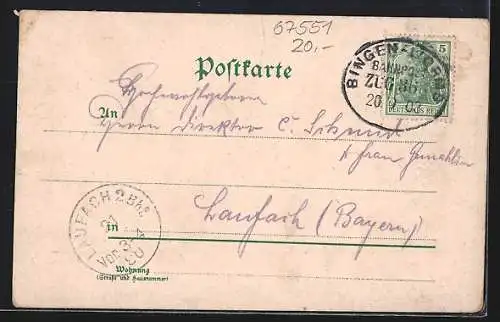 67551
20,-
Postkarte
BINGEN-WORMS
BAHNPOST
ZUG 86
20
5
DEUTSCHES REICH
Hochwohlgeboren
An Herrn Direktor C. Schmidt
& Frau Gemahlin
LAUFACH 2 Bhf
21
Vor. 3-4
in Laufach (Bayern)
Wohnung
(Straße und Hausnummer)